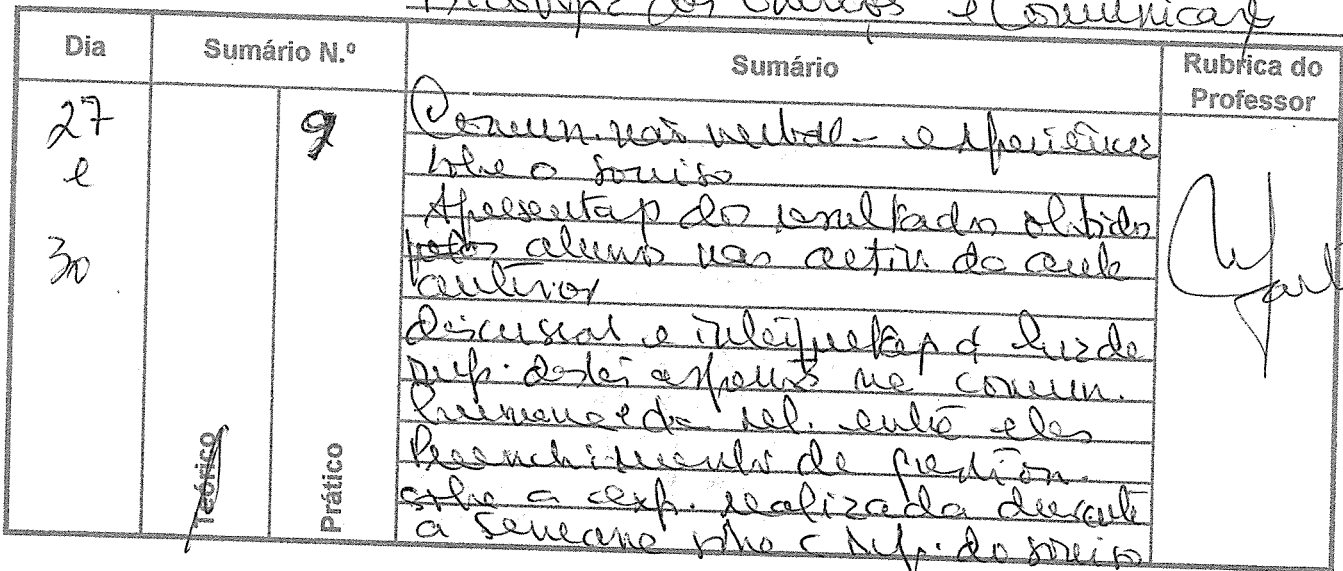 e Comunicaç
Dia Sumário N.º Sumário Rubrica do Professor
27 e 30
9
Comun. não verbal - experiências
sobre o sorriso
Apresentaç do resultado obtidos
pelos alunos nas activ. da aula
anterior
Discussão e interpretaç à luz da
destes aspectos na comun.
humana e da rel. entre eles
Preenchimento de
sobre a exp. realizada durante
a semana sobre a do sorriso
Teórico
Prático